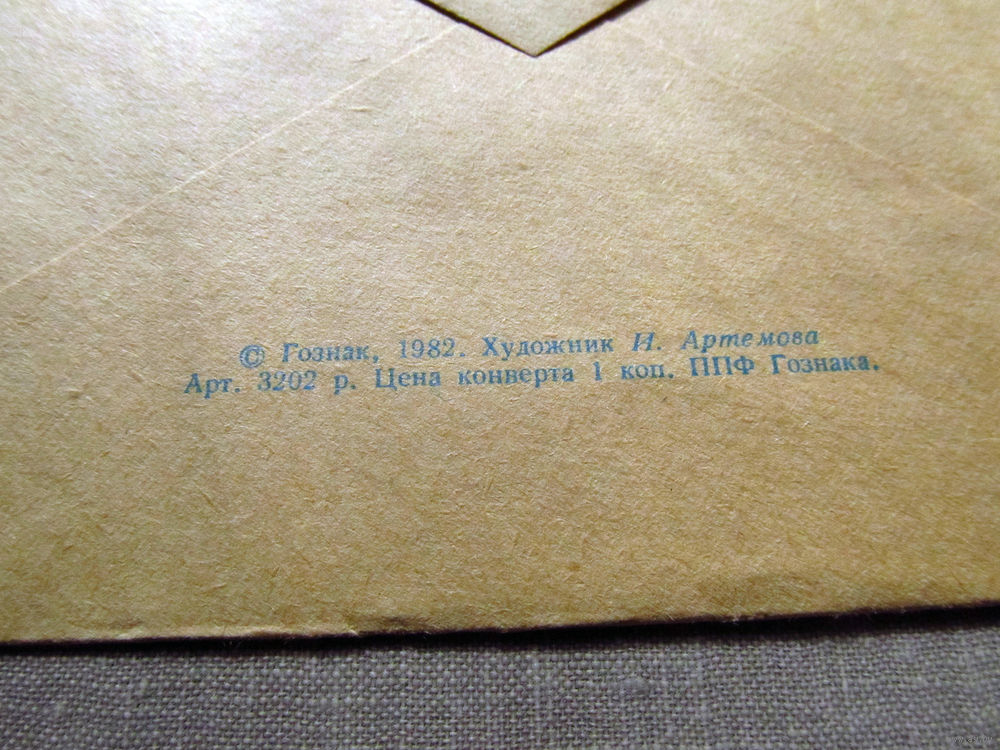 © Гознак, 1982. Художник И. Артемова
Арт. 3202 р. Цена конверта 1 коп. ППФ Гознака.